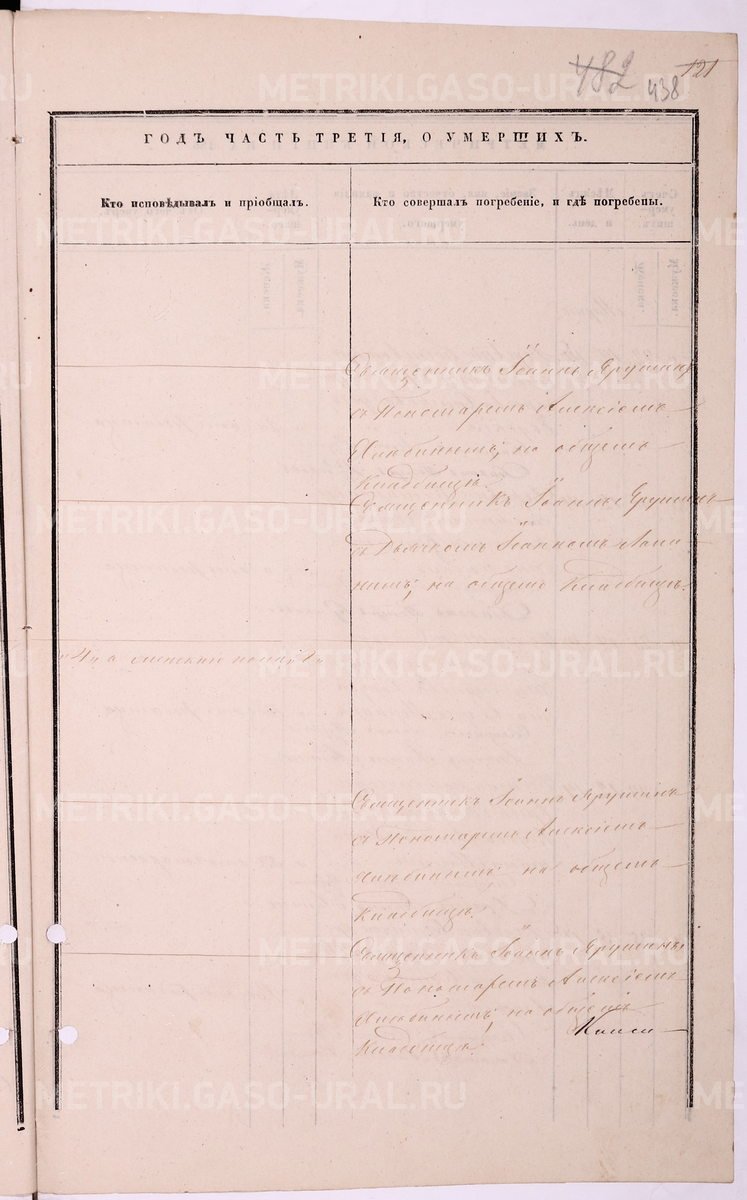 482 438 121
METRIKI.GASO-URAL.RU
ГОДЪ ЧАСТЬ ТРЕТІЯ, О УМЕРШИХЪ.
Кто исповѣдывалъ и пріобщалъ.
Кто совершалъ погребеніе, и гдѣ погребены.
Священникъ Іоаннъ Ярушинъ
съ Пономаремъ Алексіемъ
на общемъ
Кладбищѣ.
Священникъ Іоаннъ Ярушинъ
съ Дьячкомъ Іоанномъ Лапи
нымъ, на общемъ Кладбищѣ.
Священникъ Іоаннъ Ярушинъ
съ Пономаремъ Алексіемъ
на общемъ
Кладбищѣ.
Священникъ Іоаннъ Ярушинъ
съ Пономаремъ Алексіемъ
на общемъ
Кладбищѣ.